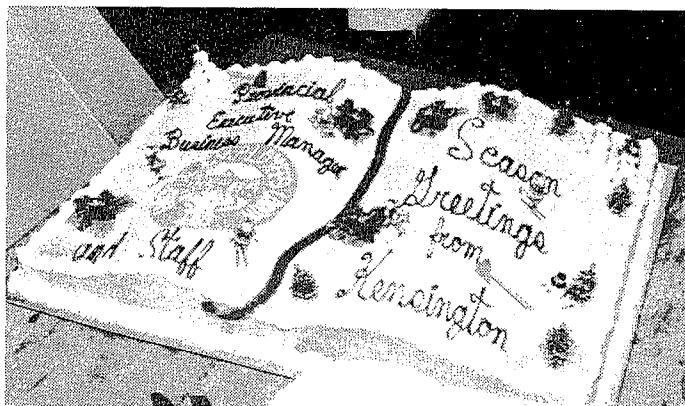 Provincial
Executive
Business Manager
and Staff
Season
Greetings
from
Kensington